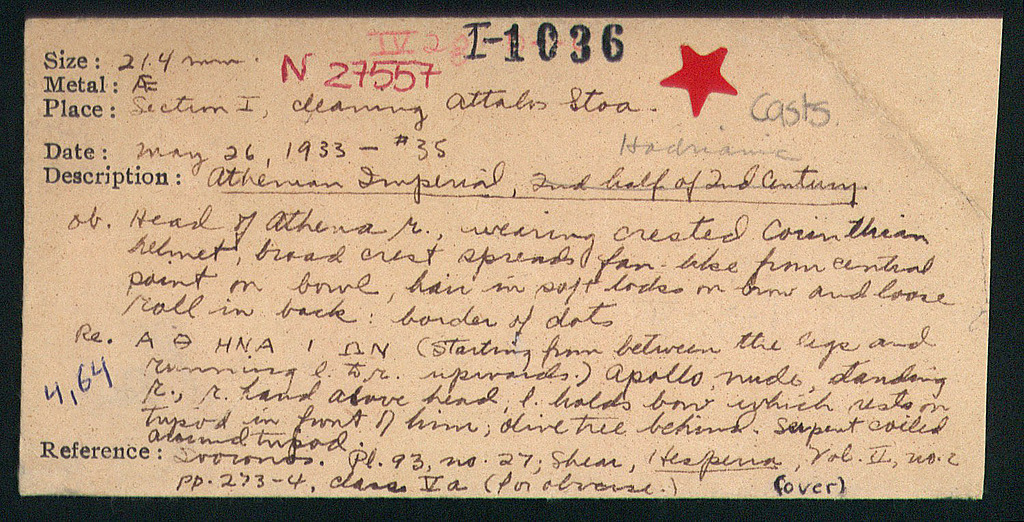 I-1036
IV
N 27557
Size: 21.4 mm.
Metal: Æ
Place: Section I, cleaning Attalos Stoa.
Casts
Hadrianic
Date: May 26, 1933 - #35
Description: Athenian Imperial, 2nd half of 2nd Century.
ob. Head of Athena r., wearing crested Corinthian
helmet, broad crest spreads fan-like from central
point on bowl, hair in soft locks on brow and loose
roll in back: border of dots
Re. Α Θ ΗΝΑ Ι ΩΝ (Starting from between the legs and
running l. to r. upwards.) Apollo, nude, standing
r., r. hand above head, l. holds bow which rests on
tripod in front of him; olive tree behind. Serpent coiled
around tripod.
4,64
Reference: Svoronos. Pl. 93, no. 27; Shear, Hesperia, Vol. II, no. 2
pp. 273-4, class Va (for obverse.)
(over)